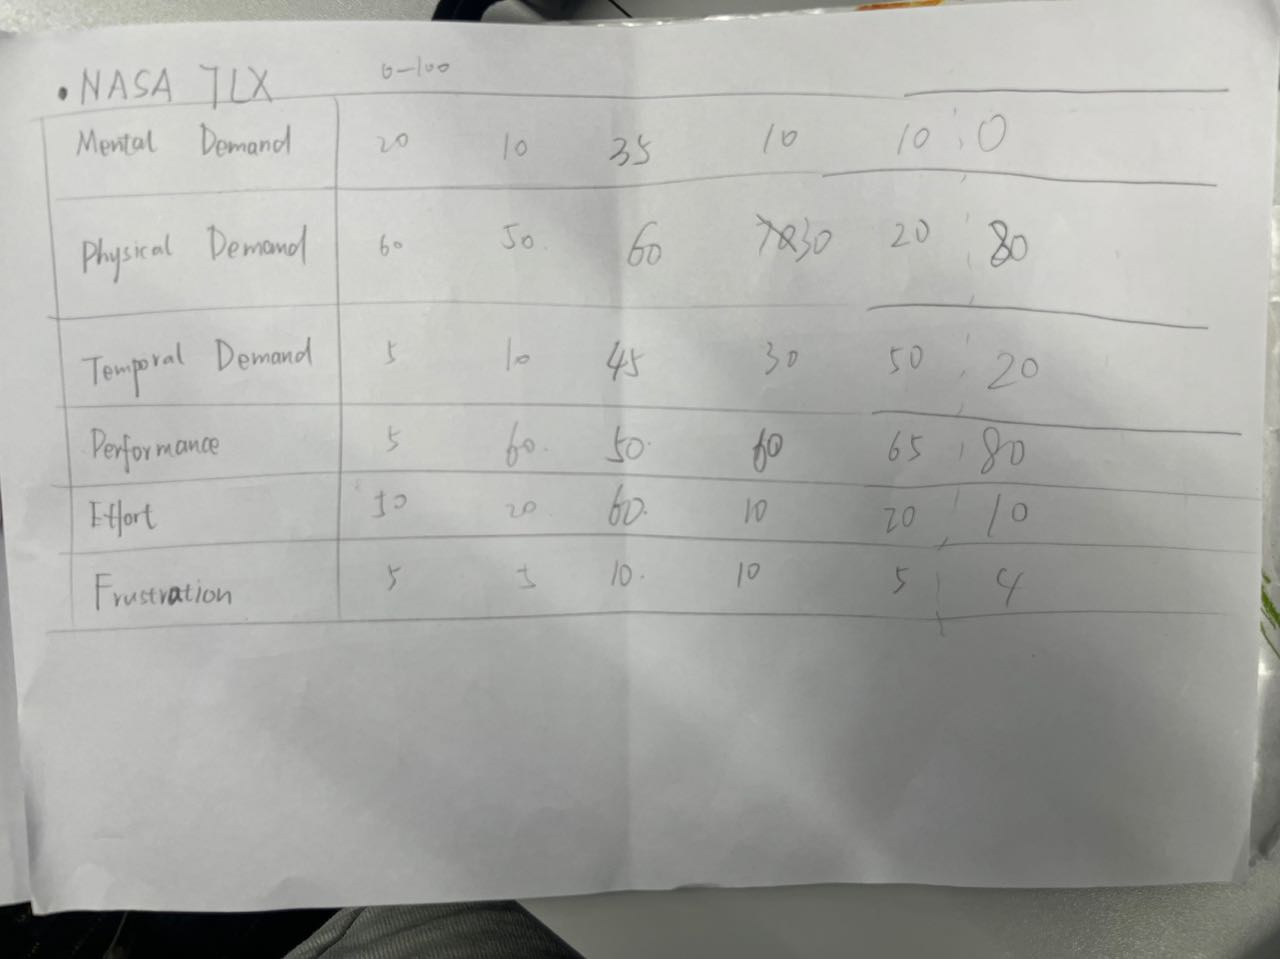 • NASA TLX 0-100
Mental Demand 20 10 35 10 10 0
Physical Demand 60 50. 60 30 20 80
Temporal Demand 5 10 45 30 50 20
Performance 5 60. 50. 60 65 80
Effort 20. 60. 10 20 10
Frustration 5 5 10. 10 5 4